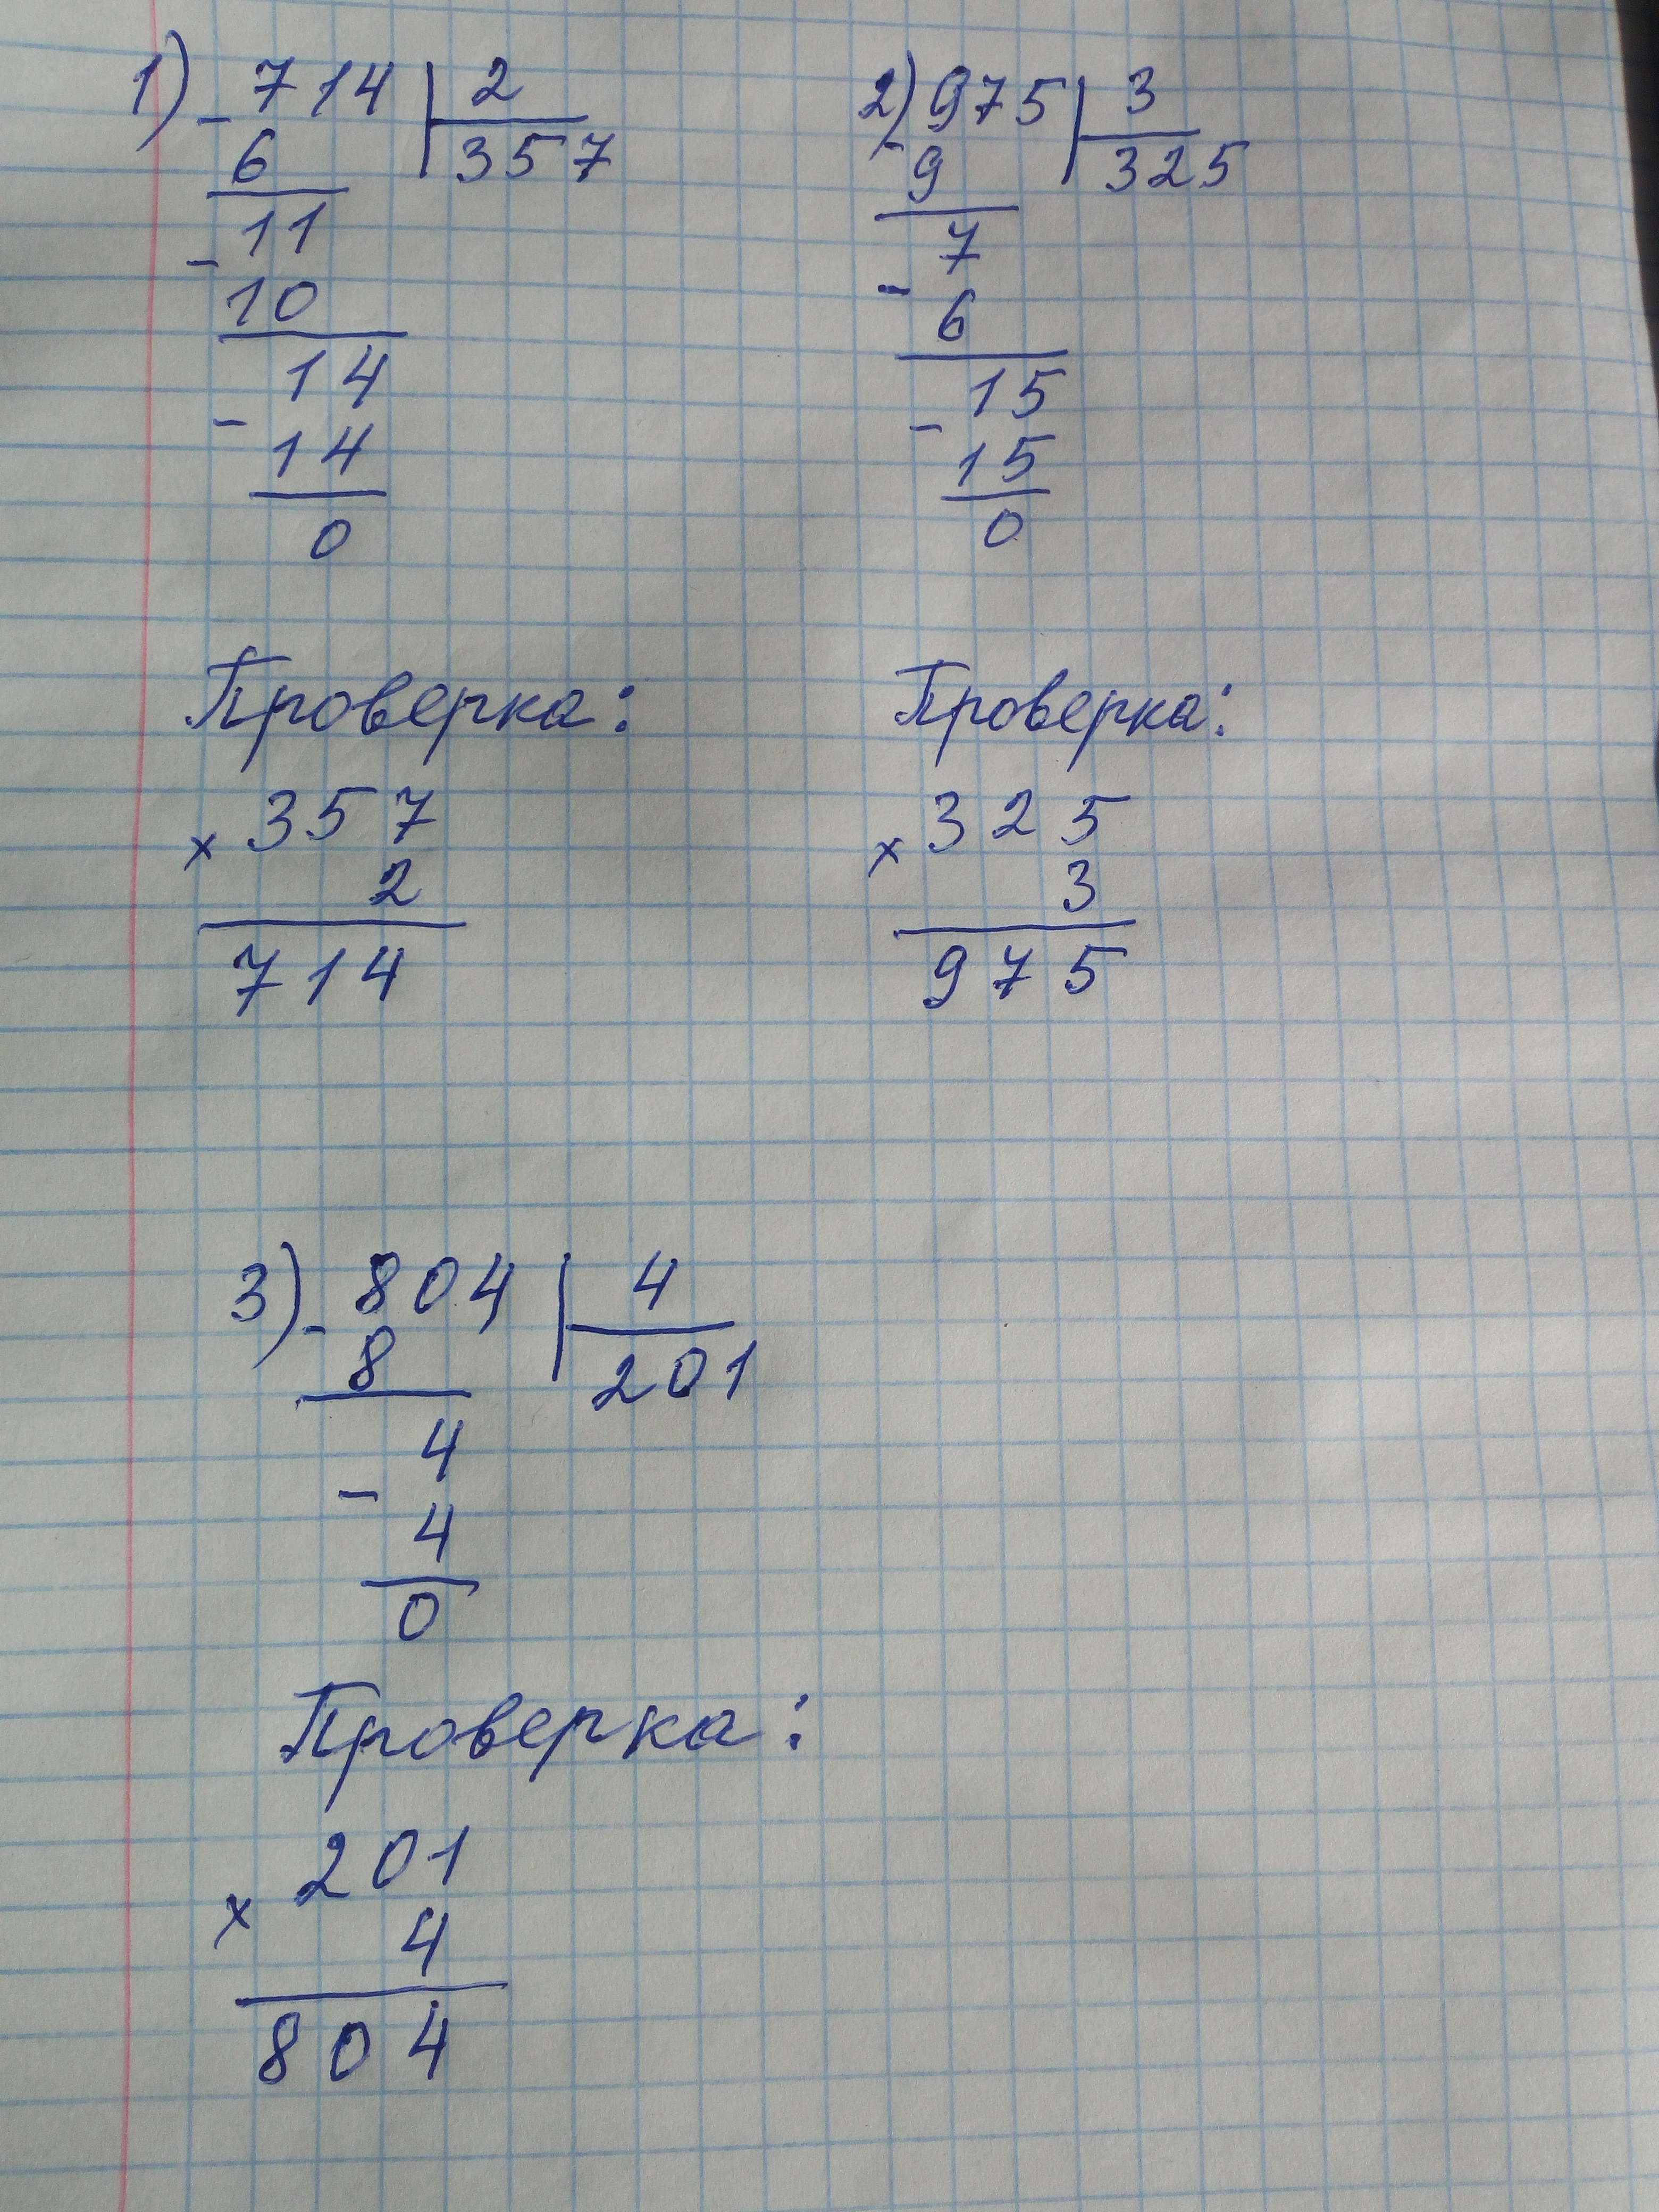 1) - 714 | 2
6 357
- 11
10
14
-
14
0
Проверка:
× 357
2
714
2) - 975 | 3
9 325
7
-
6
15
-
15
0
Проверка:
× 325
3
975
3) - 804 | 4
8 201
4
-
4
0
Проверка:
× 201
4
804